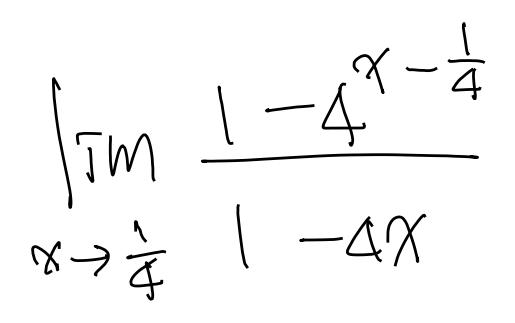 lim 1 - 4^{x - \frac{1}{4}}
x → \frac{1}{4} 1 - 4x